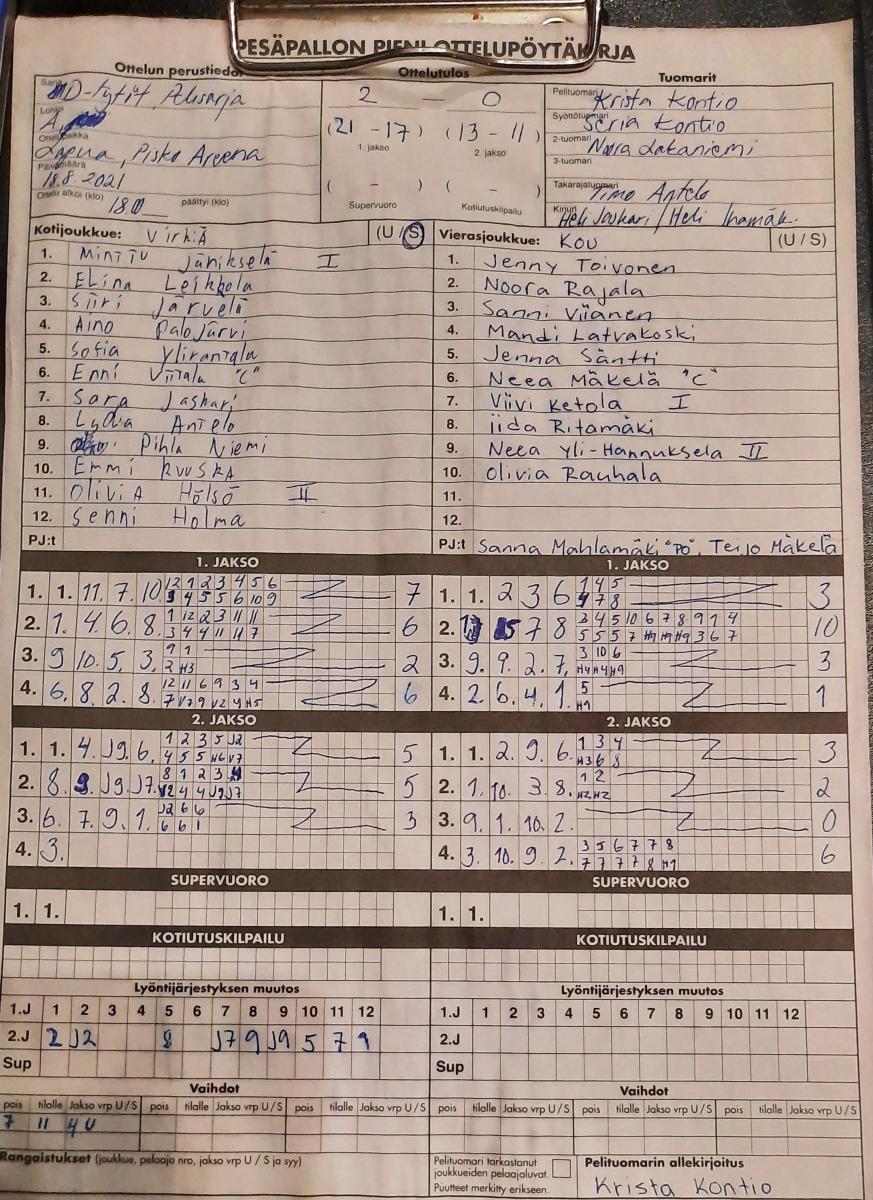 PESÄPALLON PIENI OTTELUPÖYTÄKIRJA
Ottelun perustiedot
Ottelutulos
Tuomarit
Sarja D-tytöt, Alisarja
Lohko A
Ottelupaikka Lapua, Pisko Areena
Päivämäärä 18.8.2021
Ottelu alkoi (klo) 18.0 päättyi (klo)
2 — 0
(21 - 17) (13 - 11)
1. jakso 2. jakso
( - ) ( - )
Supervuoro Kotiutuskilpailu
Pelituomari Krista Kontio
Syöttötuomari Kontio
2-tuomari Noora Lakaniemi
3-tuomari
Takarajatuomari Timo Antelo
Kirjuri Heli Joukari / Heli
Kotijoukkue: VirkiÄ (U / S)
1. MinTTu Jänikselä I
2. ELina Leikkola
3. Siiri Järvelä
4. Aino Palojärvi
5. Sofia Ylirantala
6. Enni Viitala "C"
7. Sara Jaskari
8. Lydia Antelo
9. Pihla Niemi
10. Emmi RuusKA
11. OliviA Hölsö II
12. Senni Holma
PJ:t
Vierasjoukkue: KOU (U / S)
1. Jenny Toivonen
2. Noora Rajala
3. Sanni Viianen
4. Mandi Latvakoski
5. Jenna Säntti
6. Neea Mäkelä "C"
7. Viivi Ketola I
8. iida Ritamäki
9. Neea Yli-Hannuksela II
10. Olivia Rauhala
11.
12.
PJ:t Sanna Mahlamäki "PÖ", Teijo Mäkelä
1. JAKSO
1. 1. 11. 7. 10. 12 1 2 3 4 5 6 7
3 4 5 5 6 10 9
2. 1. 4. 6. 8. 1 12 2 3 11 11 6
3 4 4 11 11 7
3. 9 10. 5. 3. 9 1 2
2 H3
4. 6. 8. 2. 8. 12 11 6 9 3 4 6
7 V7 9 V2 4 H5
2. JAKSO
1. 1. 4. J9. 6. 1 2 3 5 J2 5
4 5 5 H6 V7
2. 8. 9. J9. J7. 8 1 2 3 5
V2 4 4 J9 J7
3. 6. 7. 9. 1. J2 6 6 3
6 6 1
4. 3.
SUPERVUORO
1. 1.
KOTIUTUSKILPAILU
1. JAKSO
1. 1. 2 3 6 1 4 5 3
7 8
2. 7 8 3 4 5 10 6 7 8 9 1 4 10
5 5 5 7 H9 H9 H9 3 6 7
3. 9. 9. 2. 7. 3 10 6 3
H4 H4 H9
4. 2. 6. 4. 1. 5 1
H9
2. JAKSO
1. 1. 2. 9. 6. 1 3 4 3
H3 6 8
2. 1. 10. 3. 8. 1 2 2
H2 H2
3. 9. 1. 10. 2. 0
4. 3. 10. 9. 2. 3 5 6 7 7 8 6
7 7 7 7 8 H1
SUPERVUORO
1. 1.
KOTIUTUSKILPAILU
Lyöntijärjestyksen muutos
1.J 1 2 3 4 5 6 7 8 9 10 11 12
2.J 2 J2 8 J7 9 J9 5 7 1
Sup
Lyöntijärjestyksen muutos
1.J 1 2 3 4 5 6 7 8 9 10 11 12
2.J
Sup
Vaihdot
pois tilalle Jakso vrp U / S pois tilalle Jakso vrp U / S pois tilalle Jakso vrp U / S
7 11 4U
Vaihdot
pois tilalle Jakso vrp U / S pois tilalle Jakso vrp U / S pois tilalle Jakso vrp U / S
Rangaistukset (joukkue, pelaaja nro, jakso vrp U / S ja syy)
Pelituomari tarkastanut
joukkueiden pelaajaluvat.
Puutteet merkitty erikseen.
Pelituomarin allekirjoitus
Krista Kontio